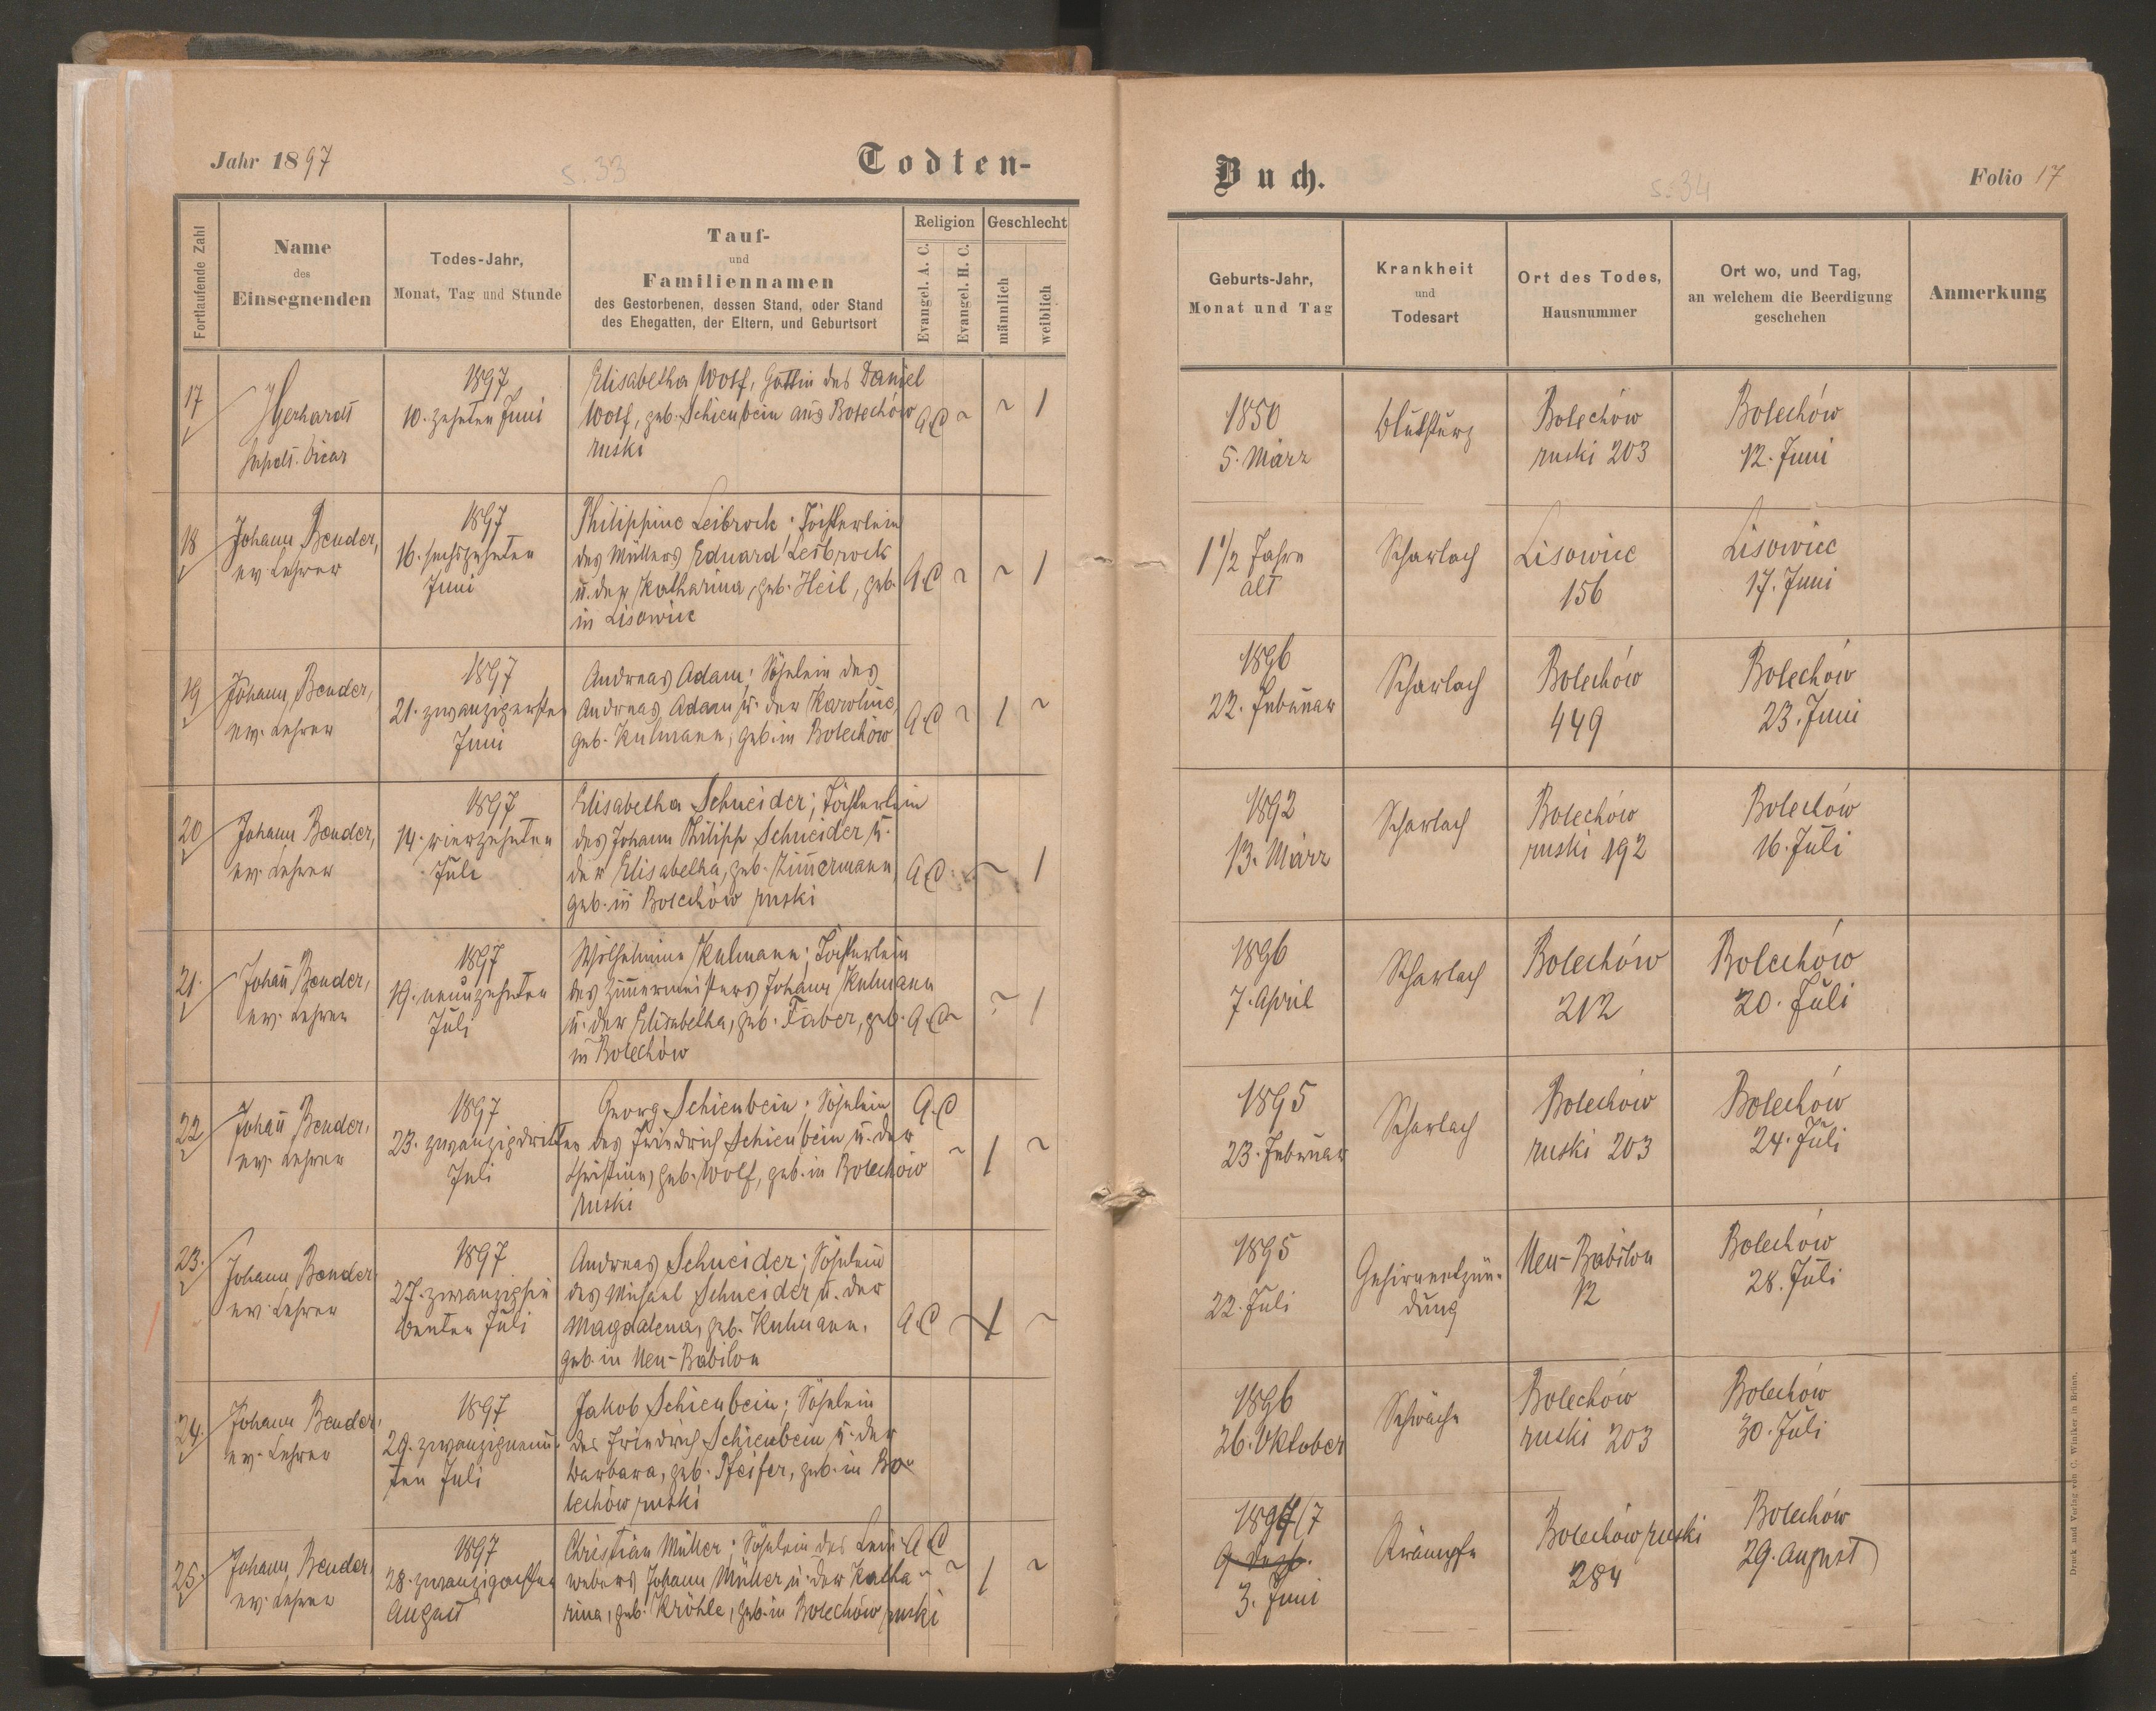 Jahr 1897
s. 33
Todten-
Fortlaufende Zahl
Name
des
Einsegnenden
Todes-Jahr,
Monat, Tag und Stunde
Tauf-
und
Familiennamen
des Gestorbenen, dessen Stand, oder Stand
des Ehegatten, der Eltern, und Geburtsort
Religion
Evangel. A. C.
Evangel. H. C.
Geschlecht
männlich
weiblich
17
JGerhardt
Vicar
1897
10. zehnten Juni
Elisabetha Wolf, Gattin des Daniel
Wolf, geb. Schienbein aus Bolechów
ruski
A.C ~ ~ 1
18
Johann Bender,
ev. Lehrer
1897
16. sechszehnten
Juni
Philippine Leibrock; Töchterlein
des Müllers Eduard Leibrock
u. der Katharina, geb. Heil, geb.
in Lisowiec
A.C ~ ~ 1
19
Johann Bender,
ev. Lehrer
1897
21. zwanzigersten
Juni
Andreas Adam; Söhnlein des
Andreas Adam u. der Karoline,
geb. Kulmann, geb. in Bolechów
A.C ~ 1 ~
20
Johann Bender,
ev. Lehrer
1897
14. vierzehnten
Juli
Elisabetha Schneider; Töchterlein
des Johann Philipp Schneider u.
der Elisabetha, geb. Zim̄ermann,
geb. in Bolechów ruski
A.C ~ 1
21.
Johan̄ Bender,
ev. Lehrer
1897
19. neunzehnten
Juli
Wilhelmine Kulmann; Töchterlein
des Zim̄ermeisters Johann Kulmann
u. der Elisabetha, geb. Faber, geb.
in Bolechów
A.C ~ ~ 1
22
Johan̄ Bender,
ev. Lehrer
1897
23. zwanzigdritten
Juli
Georg Schienbein; Söhnlein
des Friedrich Schienbein u. der
Christine, geb. Wolf, geb. in Bolechów
ruski
A.C ~ 1 ~
23.
Johann Bender,
ev. Lehrer
1897
27. zwanzigsie
benten Juli
Andreas Schneider; Söhnlein
des Michael Schneider u. der
Magdalena, geb. Kulmann,
geb. in Neu-Babilon
A.C ~ 1 ~
24.
Johann Bender,
ev. Lehrer
1897
29. zwanzigneun-
ten Juli
Jakob Schienbein; Söhnlein
des Friedrich Schienbein u. der
Barbara, geb. Pfeifer, geb. in Bo-
lechów ruski
25.
Johann Bender,
ev. Lehrer
1897
28. zwanzigachten
August
Christian Müller; Söhnlein des Lein-
webers Johann Müller u. der Katha
rina, geb. Kröhle, geb. in Bolechów ruski
A.C ~ ~ 1 ~
Buch.
s. 34
Folio 17
Geburts-Jahr,
Monat und Tag
Krankheit
und
Todesart
Ort des Todes,
Hausnummer
Ort wo, und Tag,
an welchem die Beerdigung
geschehen
Anmerkung
1850
5. März
Blutsturz
Bolechów
ruski 203
Bolechów
12. Juni
1 1/2 Jahre
alt
Scharlach
Lisowiec
156
Lisowiec
17. Juni
1896
22. Februar
Scharlach
Bolechów
449
Bolechów
23. Juni
1892
13. März
Scharlach
Bolechów
ruski 192
Bolechów
16. Juli
1896
7. April
Scharlach
Bolechów
212
Bolechów
20. Juli
1895
23. Februar
Scharlach
Bolechów
ruski 203
Bolechów
24. Juli
1895
22. Juli
Gehirnentzün-
dung
Neu-Babilon
12
Bolechów
28. Juli
1896
26. Oktober
Schwäche
Bolechów
ruski 203
Bolechów
30. Juli
1897
3. Juni
Krämpfe
Bolechów ruski
284
Bolechów
29. August
Druck und Verlag von C. Winiker in Brünn.